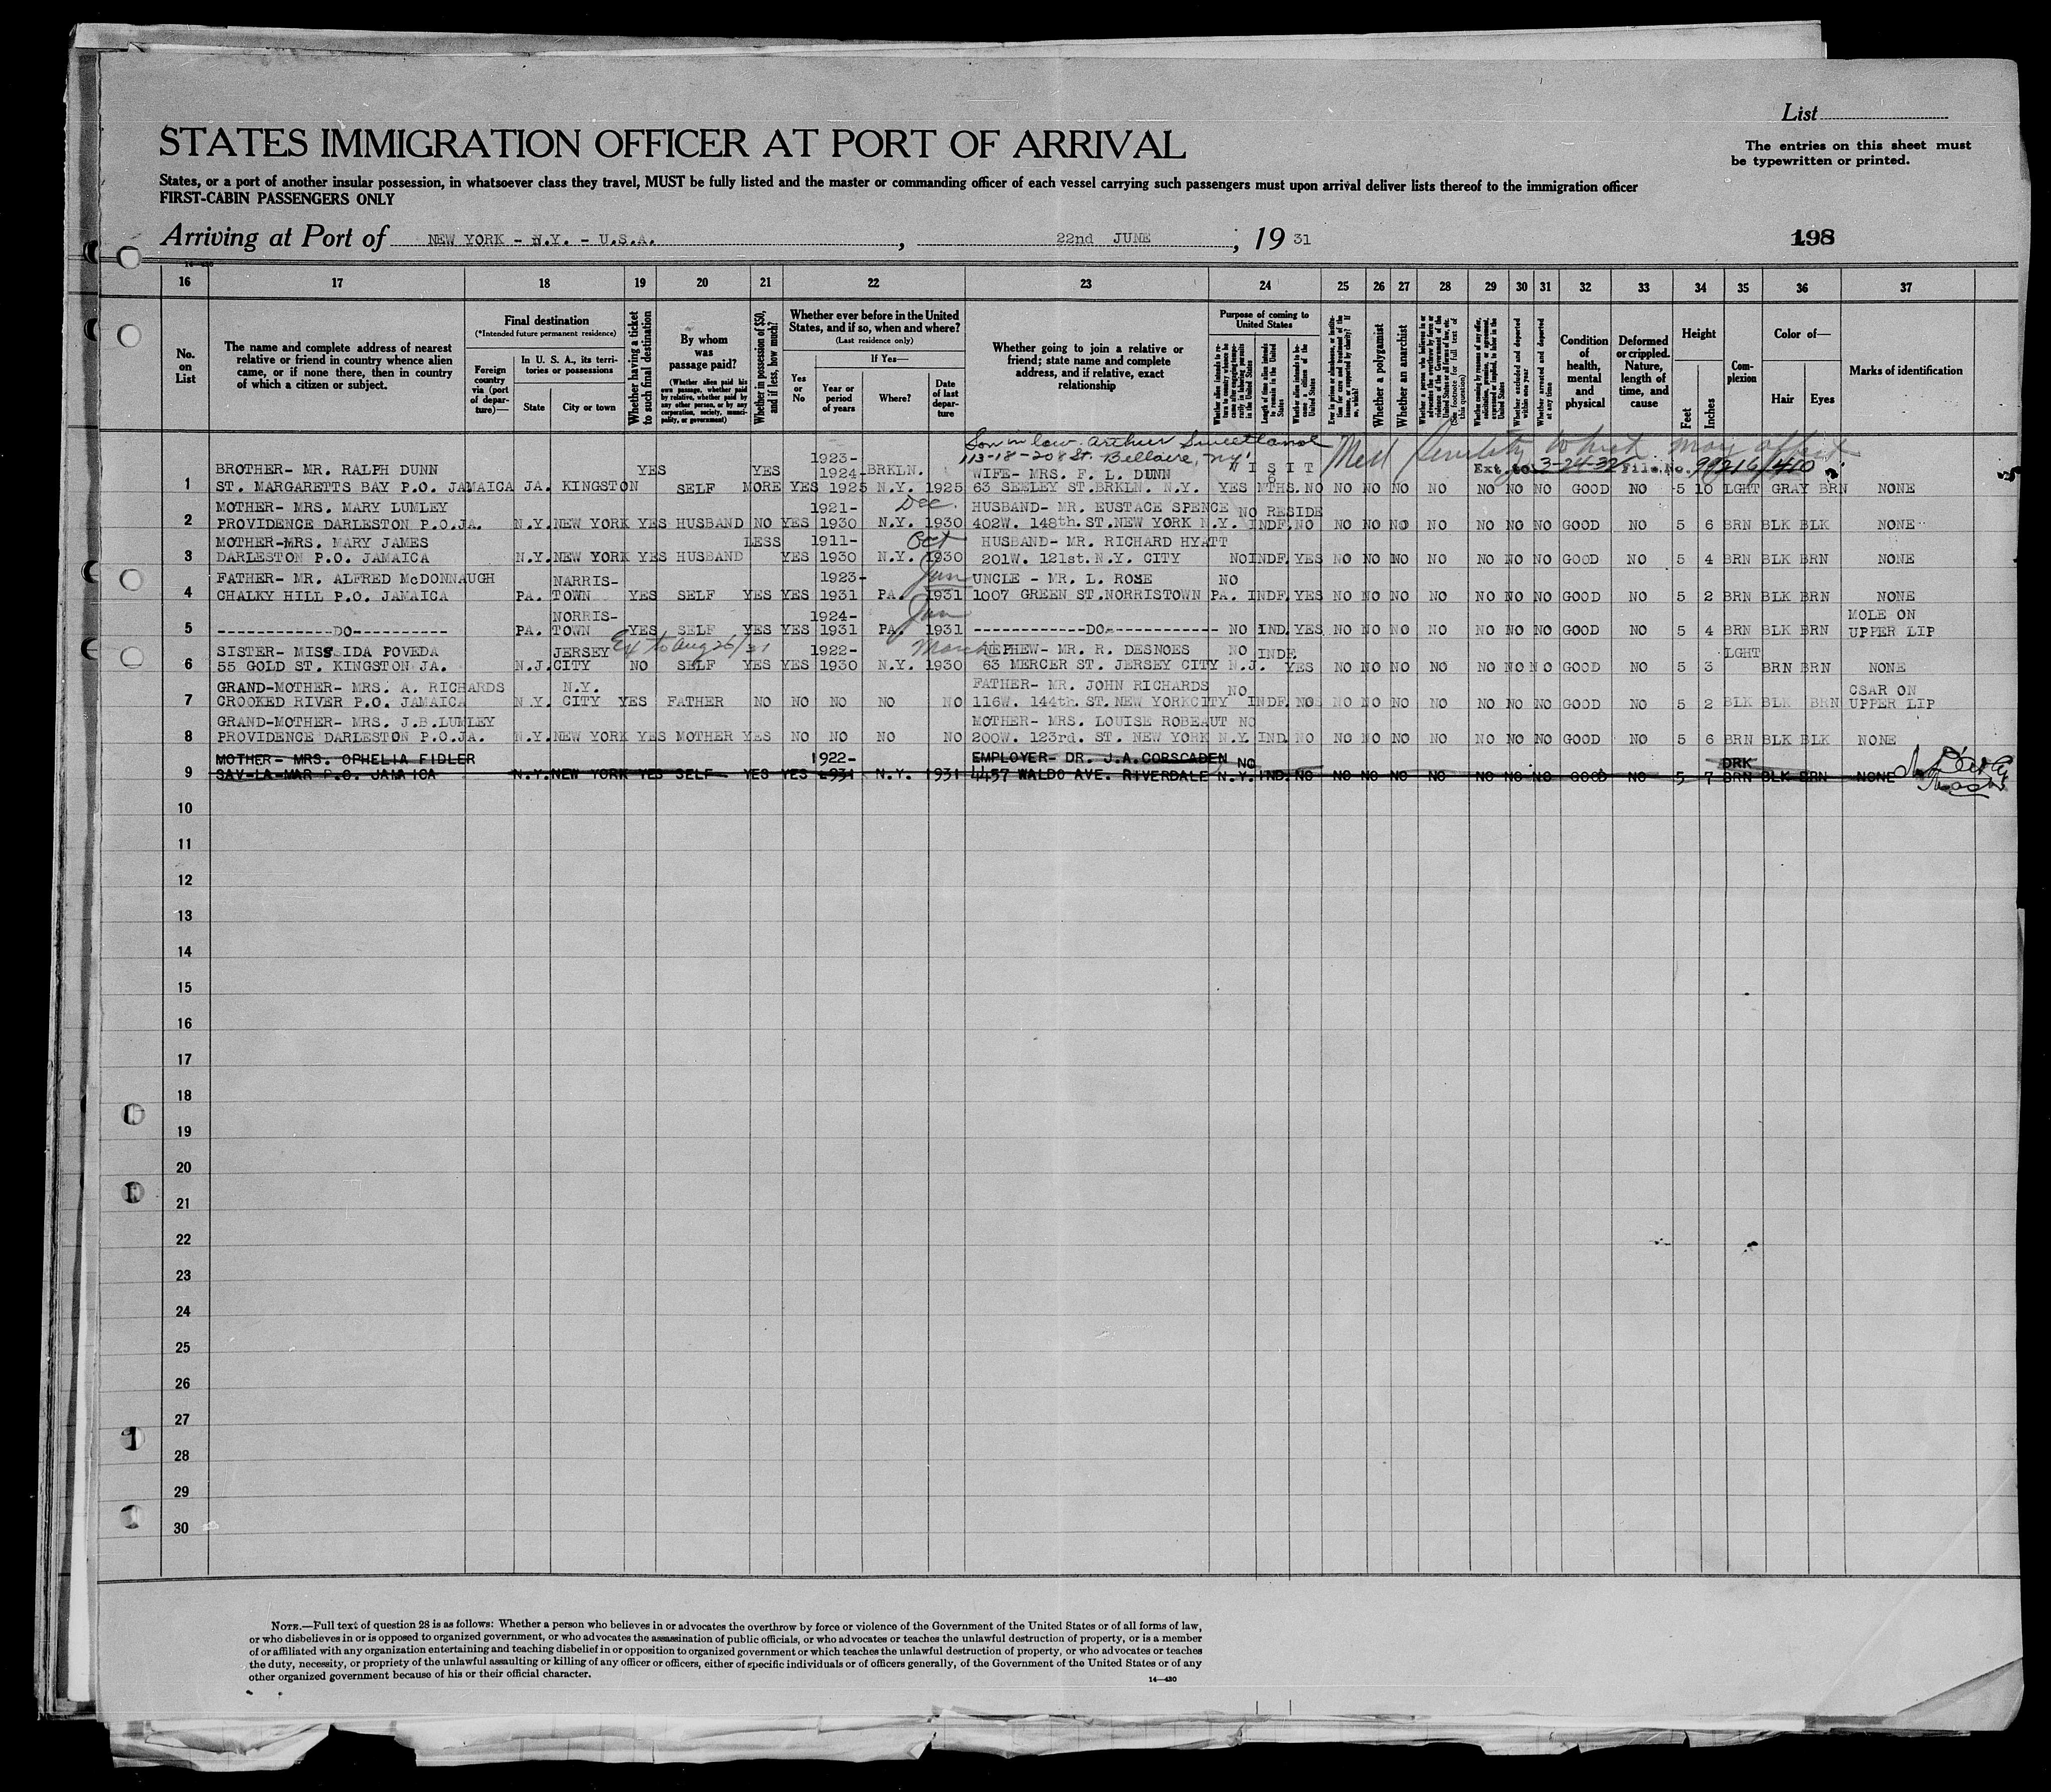 List
STATES IMMIGRATION OFFICER AT PORT OF ARRIVAL
The entries on this sheet must
be typewritten or printed.
States, or a port of another insular possession, in whatsoever class they travel, MUST be fully listed and the master or commanding officer of each vessel carrying such passengers must upon arrival deliver lists thereof to the immigration officer
FIRST-CABIN PASSENGERS ONLY
Arriving at Port of NEW YORK - N.Y. - U.S.A. , 22nd JUNE , 19 31
198
16 17 18 19 20 21 22 23 24 25 26 27 28 29 30 31 32 33 34 35 36 37
No. on List
The name and complete address of nearest relative or friend in country whence alien came, or if none there, then in country of which a citizen or subject.
Final destination
(*Intended future permanent residence)
Foreign country via (port of departure)—
In U. S. A., its territories or possessions
State
City or town
Whether having a ticket to such final destination
By whom was passage paid?
(Whether alien paid his own passage, whether paid by relative, whether paid by any other person, or by any corporation, society, municipality, or government)
Whether in possession of $50, and if less, how much?
Whether ever before in the United States, and if so, when and where?
(Last residence only)
If Yes—
Yes or No
Year or period of years
Where?
Date of last departure
Whether going to join a relative or friend; state name and complete address, and if relative, exact relationship
Purpose of coming to United States
Length of time alien intends to remain in the United States
Whether alien intends to become a citizen of the United States
Whether a polygamist
Whether an anarchist
Whether excluded and deported within one year
Whether arrested and deported at any time
Condition of health, mental and physical
Deformed or crippled. Nature, length of time, and cause
Height
Feet
Inches
Complexion
Color of—
Hair
Eyes
Marks of identification
Son in law. Arthur Sweetland
113-18-208 St. Bellaire, NY
Ext. to 3-24-32 File No. 99216/410
1923-
BROTHER- MR. RALPH DUNN YES YES 1924- BRKLN. WIFE- MRS. F. L. DUNN VISIT
1 ST. MARGARETTS BAY P.O. JAMAICA JA. KINGSTON SELF MORE YES 1925 N.Y. 1925 63 SEELEY ST.BRKLN. N.Y. YES 6 MTHS. NO NO NO NO NO NO NO NO GOOD NO 5 10 LGHT GRAY BRN NONE
MOTHER- MRS. MARY LUMLEY 1921- Dec. HUSBAND- MR. EUSTACE SPENCE NO RESIDE
2 PROVIDENCE DARLESTON P.O.JA. N.Y. NEW YORK YES HUSBAND NO YES 1930 N.Y. 1930 402W. 148th. ST.NEW YORK N.Y. INDF. NO NO NO NO NO NO NO NO GOOD NO 5 6 BRN BLK BLK NONE
MOTHER-MRS. MARY JAMES LESS 1911- Oct HUSBAND- MR. RICHARD HYATT
3 DARLESTON P.O. JAMAICA N.Y. NEW YORK YES HUSBAND YES 1930 N.Y. 1930 201W. 121st. N.Y. CITY NO INDF. YES NO NO NO NO NO NO NO GOOD NO 5 4 BRN BLK BRN NONE
FATHER- MR. ALFRED McDONNAUGH NARRIS- 1923- Jan UNCLE - MR. L. ROSE NO
4 CHALKY HILL P.O. JAMAICA PA. TOWN YES SELF YES YES 1931 PA. 1931 1007 GREEN ST.NORRISTOWN PA. INDF. YES NO NO NO NO NO NO NO GOOD NO 5 2 BRN BLK BRN NONE
NORRIS- 1924- Jan MOLE ON
5 ------------DO---------- PA. TOWN YES SELF YES YES 1931 PA. 1931 ------------DO----------- NO IND. YES NO NO NO NO NO NO NO GOOD NO 5 4 BRN BLK BRN UPPER LIP
SISTER- MISS IDA POVEDA JERSEY Ex to Aug 26/31 1922- March NEPHEW- MR. R. DESNOES NO INDF. LGHT
6 55 GOLD ST. KINGSTON JA. N.J. CITY NO SELF YES YES 1930 N.Y. 1930 63 MERCER ST. JERSEY CITY N.J. YES NO NO NO NO NO NO NO GOOD NO 5 3 BRN BRN NONE
GRAND-MOTHER- MRS. A. RICHARDS N.Y. FATHER- MR. JOHN RICHARDS NO CSAR ON
7 CROOKED RIVER P.O. JAMAICA N.Y. CITY YES FATHER NO NO NO NO NO 116W. 144th. ST. NEW YORKCITY INDF. NO NO NO NO NO NO NO NO GOOD NO 5 2 BLK BLK BRN UPPER LIP
GRAND-MOTHER- MRS. J.B.LUMLEY MOTHER- MRS. LOUISE ROBEAUT NO
8 PROVIDENCE DARLESTON P.O.JA. N.Y. NEW YORK YES MOTHER YES NO NO NO NO 200W. 123rd. ST. NEW YORK N.Y. IND. NO NO NO NO NO NO NO NO GOOD NO 5 6 BRN BLK BLK NONE
MOTHER- MRS. OPHELIA FIDLER 1922- EMPLOYER- DR. J.A.CORSCADEN NO DRK
9 SAV-LA-MAR P.O. JAMAICA N.Y. NEW YORK YES SELF YES YES 1931 N.Y. 1931 4457 WALDO AVE. RIVERDALE N.Y. IND. NO NO NO NO NO NO NO NO GOOD NO 5 7 BRN BLK BRN NONE
10
11
12
13
14
15
16
17
18
19
20
21
22
23
24
25
26
27
28
29
30
NOTE.—Full text of question 28 is as follows: Whether a person who believes in or advocates the overthrow by force or violence of the Government of the United States or of all forms of law,
or who disbelieves in or is opposed to organized government, or who advocates the assassination of public officials, or who advocates or teaches the unlawful destruction of property, or is a member
of or affiliated with any organization entertaining and teaching disbelief in or opposition to organized government or which teaches the unlawful destruction of property, or who advocates or teaches
the duty, necessity, or propriety of the unlawful assaulting or killing of any officer or officers, either of specific individuals or of officers generally, of the Government of the United States or of any
other organized government because of his or their official character.
14—430